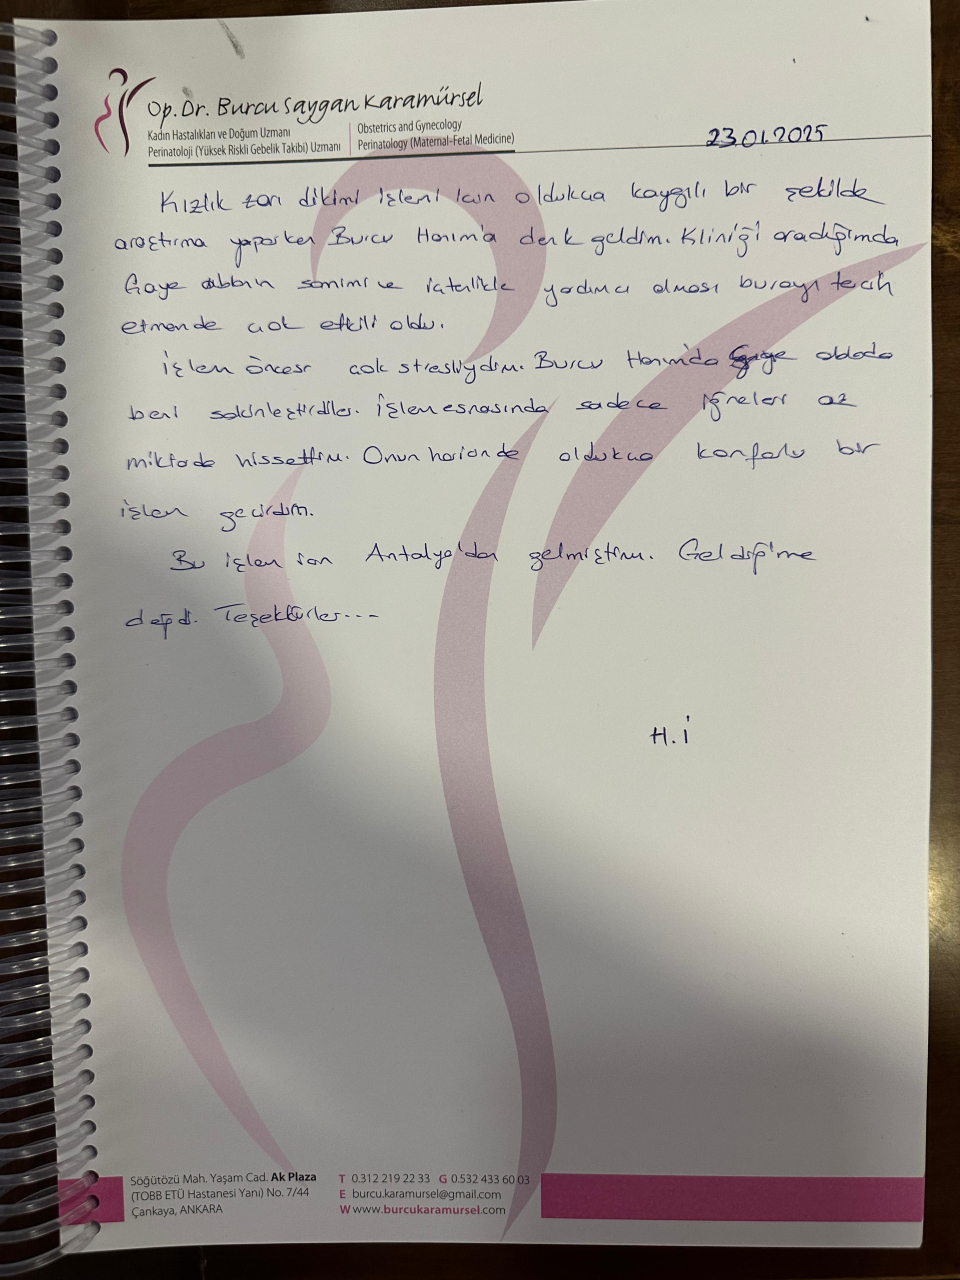 Op. Dr. Burcu Saygan Karamürsel
Kadın Hastalıkları ve Doğum Uzmanı
Perinatoloji (Yüksek Riskli Gebelik Takibi) Uzmanı
Obstetrics and Gynecology
Perinatology (Maternal-Fetal Medicine)
23.01.2025
Kızlık zarı dikimi işlemi için oldukca kaygılı bir şekilde
araştırma yaparken Burcu Hanım'a denk geldim. Kliniği aradığımda
Gaye ablanın samimi ve içtenlikle yardımcı olması burayı tercih
etmemde cok etkili oldu.
İşlem öncesi cok stresliydim. Burcu Hanım'da Gaye ablada
beni sakinleştirdiler. İşlem esnasında sadece iğneleri az
miktarda hissettim. Onun haricinde oldukca konforlu bir
işlem gecirdim.
Bu işlem icin Antalya'dan gelmiştim. Geldiğime
değdi. Teşekkürler...
H.İ
Söğütözü Mah. Yaşam Cad. Ak Plaza
(TOBB ETÜ Hastanesi Yanı) No. 7/44
Çankaya, ANKARA
T 0.312 219 22 33 G 0.532 433 60 03
E burcu.karamursel@gmail.com
W www.burcukaramursel.com